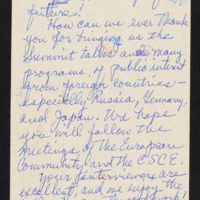 features!
How can we ever thank
you for bringing us the
Summit talks and many
programs of public interest
from foreign countries —
especially Russia, Germany,
and Japan. We hope
you will follow the
meetings of the European
Community, and the CSCE.
Your interviewers are
excellent, and we enjoy the